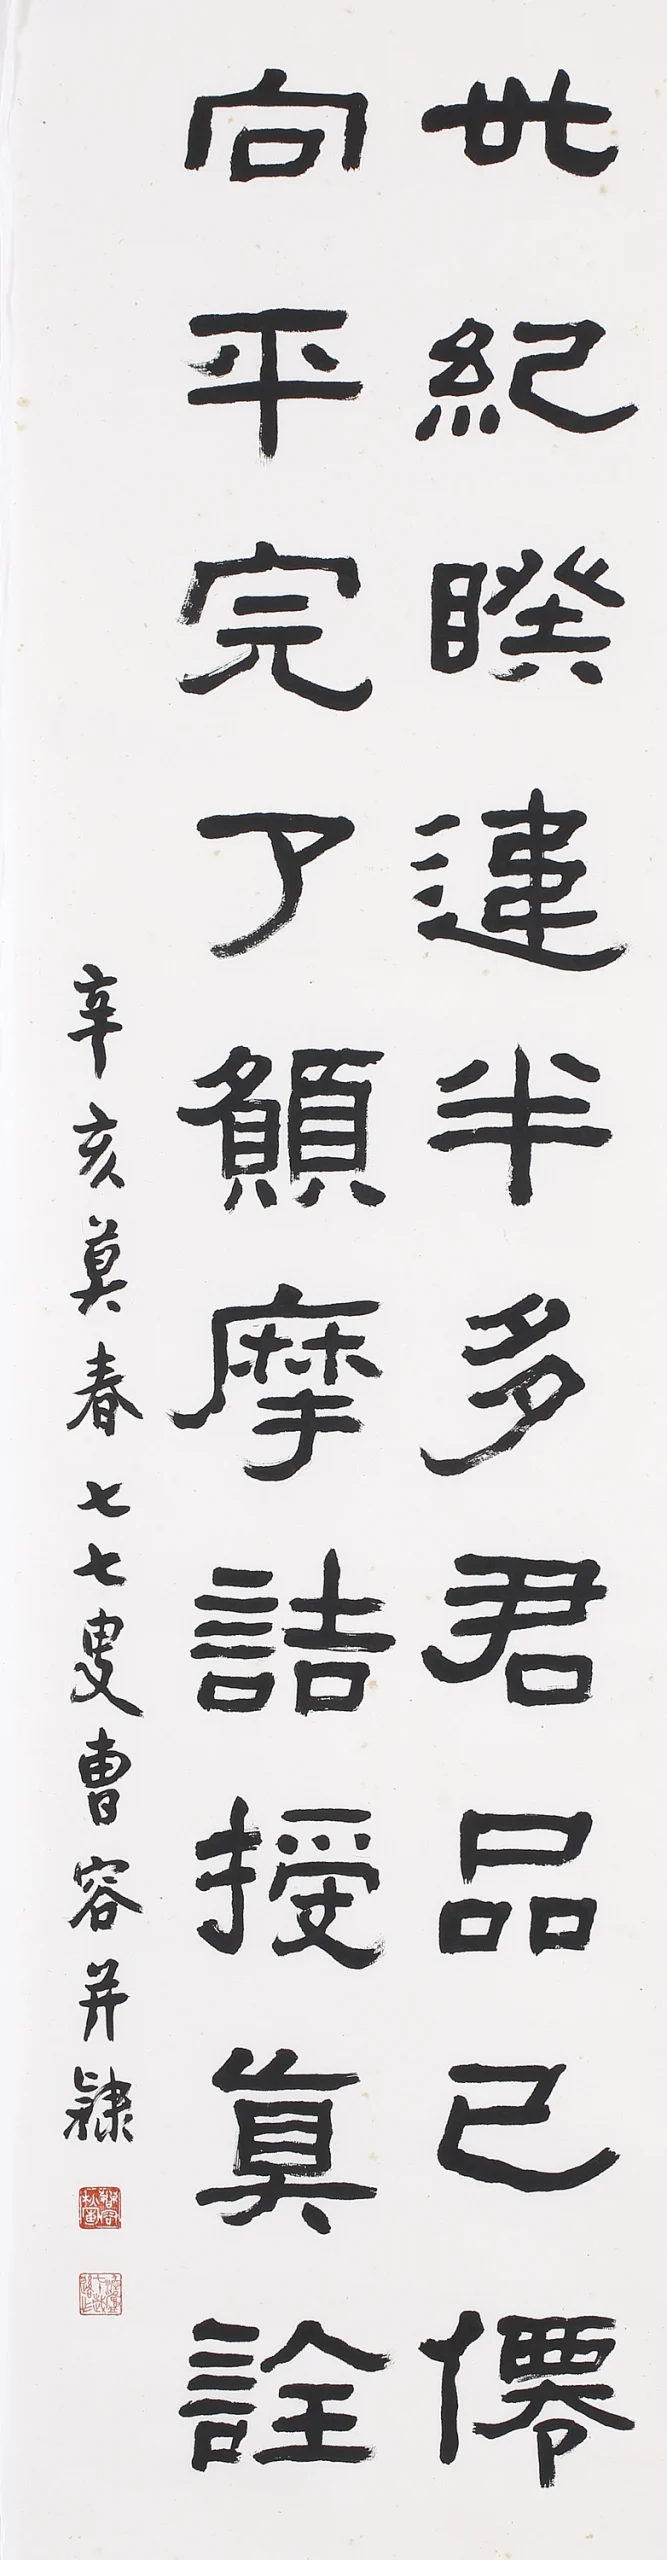 世紀睽違半多君品已僊
向平完了願摩詰授眞詮
辛亥莫春七七叟曹容并隸